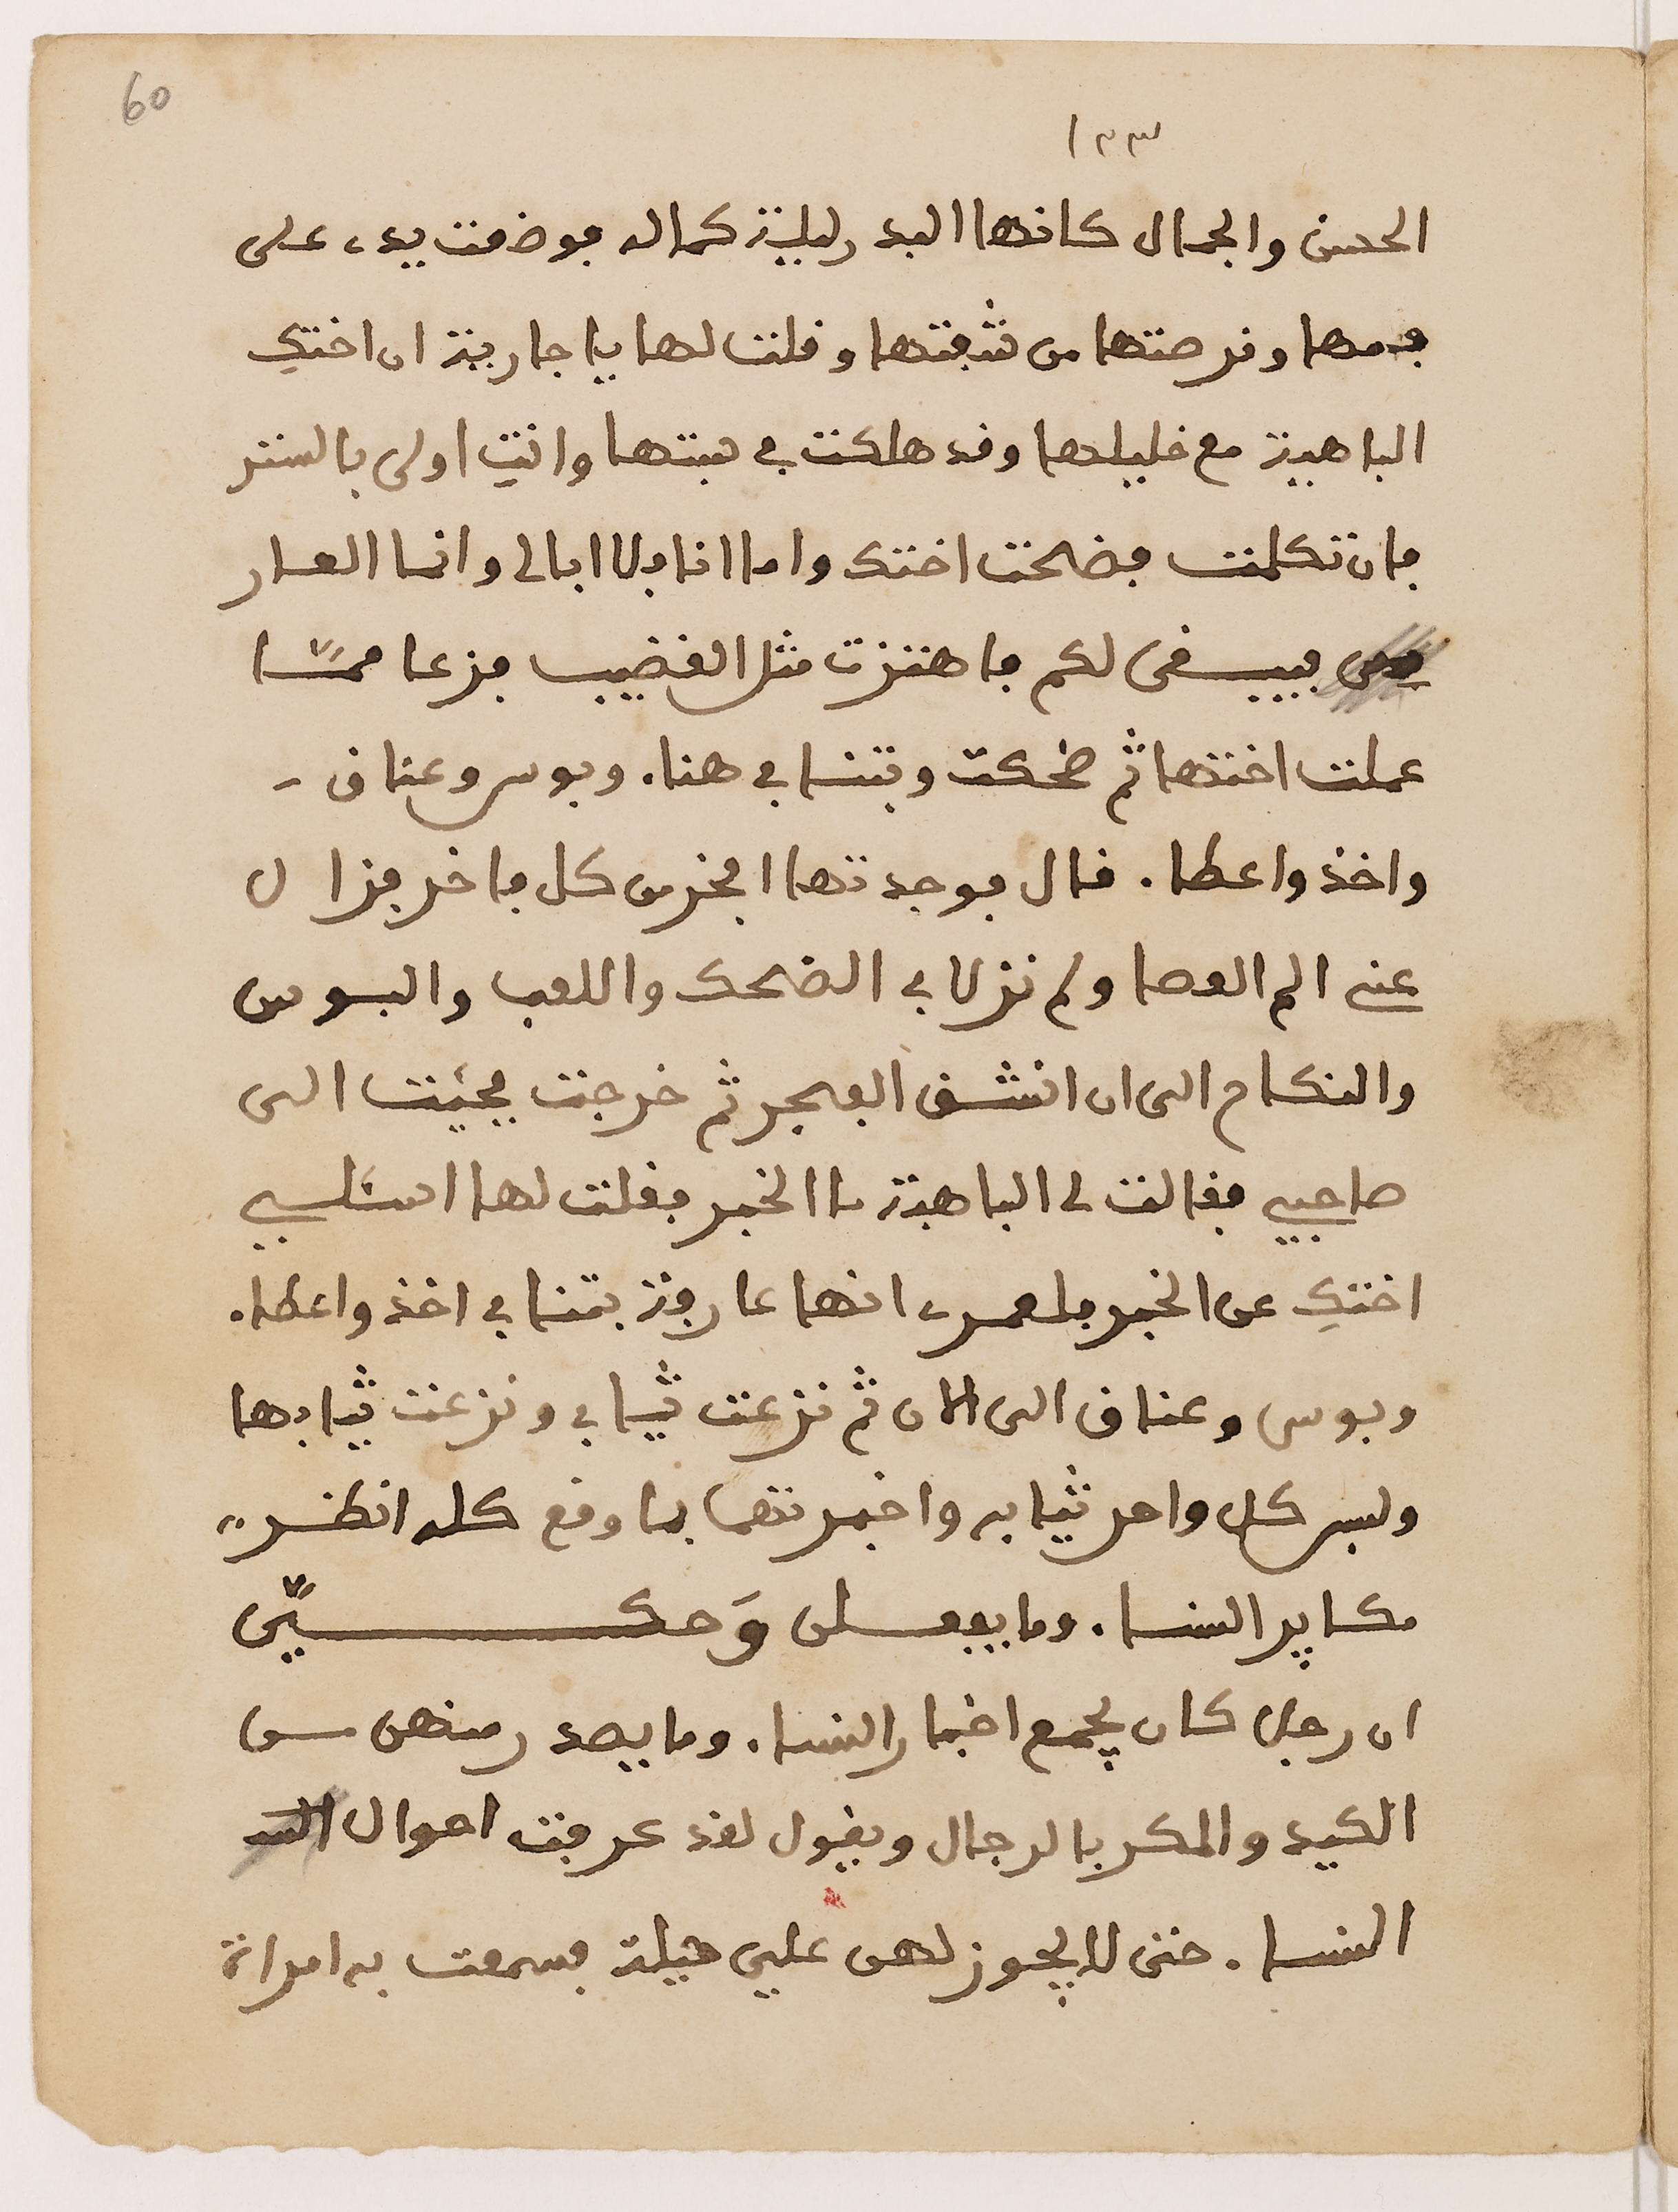 60
١٣٣
الحسن والجمال كانها البدر ليلة كماله فوضعت يدي على
فمها وقرصتها من شفتها وقلت لها يا جارية ان اختكِ
الباهية مع خليلها وقد هلكت في بيتها وانتِ اولى بالستر
فان تكلمت فضحت اختك واما انا فلا ابالي وانما العار
يبقى لكم فاهتزت مثل القضيب فزعا ممّا
عملت اختها ثم ضحكت وبتنا في هنا. وبوس وعناق
واخذ واعطا. قال فوجدتها افخر من كل فاخر فزال
عني الم العصا ولم نزل في الضحك واللعب والبوس
والنكاح الى ان انشق الفجر ثم خرجت فجئت الى
صاحبي فقالت لي الباهية ما الخبر فقلت لها اسئلي
اختكِ عن الخبر فلعمري انها عارفة بتنا في اخذ واعطا.
وبوس وعناق الى الان ثم نزعت ثيابي ونزعت ثيابها
ولبس كل واحد ثيابه واخبرتهما بما وقع كله انظر
مكايد النسا. وما يفعلن وَحكيّ
ان رجل كان يجمع اخبار النسا. وما يصدر منهن من
الكيد والمكر بالرجال ويقول لقد عرفت احوال
النسا. حتى لا يجوز لهن علي حيلة فسمعت به امراة